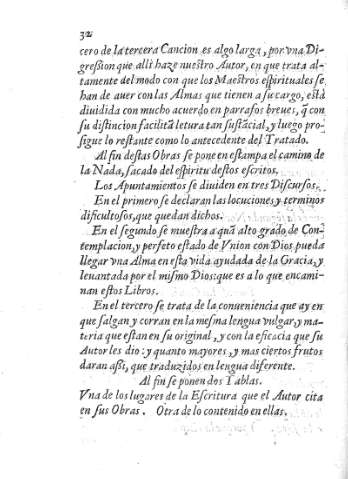 32
cero de la tercera Cancion es algo larga, por vna Di-
gression que alli haze nuestro Autor, en que trata al-
tamente del modo con que los Maestros espirituales se
han de auer con las Almas que tienen a su cargo, està
diuidida con mucho acuerdo en parrafos breues, q̃ con
su distincion facilitã letura tan sustãcial, y luego pro-
sigue lo restante como lo antecedente del Tratado.
Al fin destas Obras se pone en estampa el camino de
la Nada, sacado del espiritu destos escritos.
Los Apuntamientos se diuiden en tres Discursos.
En el primero se declaran las locuciones y terminos
dificultosos, que quedan dichos.
En el segundo se muestra a quã alto grado de Con-
templacion, y perfeto estado de Vnion con Dios pueda
llegar vna Alma en esta vida ayudada de la Gracia, y
leuantada por el mismo Dios: que es a lo que encami-
nan estos Libros.
En el tercero se trata de la conueniencia que ay en
que salgan y corran en la mesma lengua vulgar, y ma-
teria que estan en su original, y con la eficacia que su
Autor les dio: y quanto mayores, y mas ciertos frutos
daran assi, que traduzidos en lengua diferente.
Al fin se ponen dos Tablas.
Vna de los lugares de la Escritura que el Autor cita
en sus Obras. Otra de lo contenido en ellas.